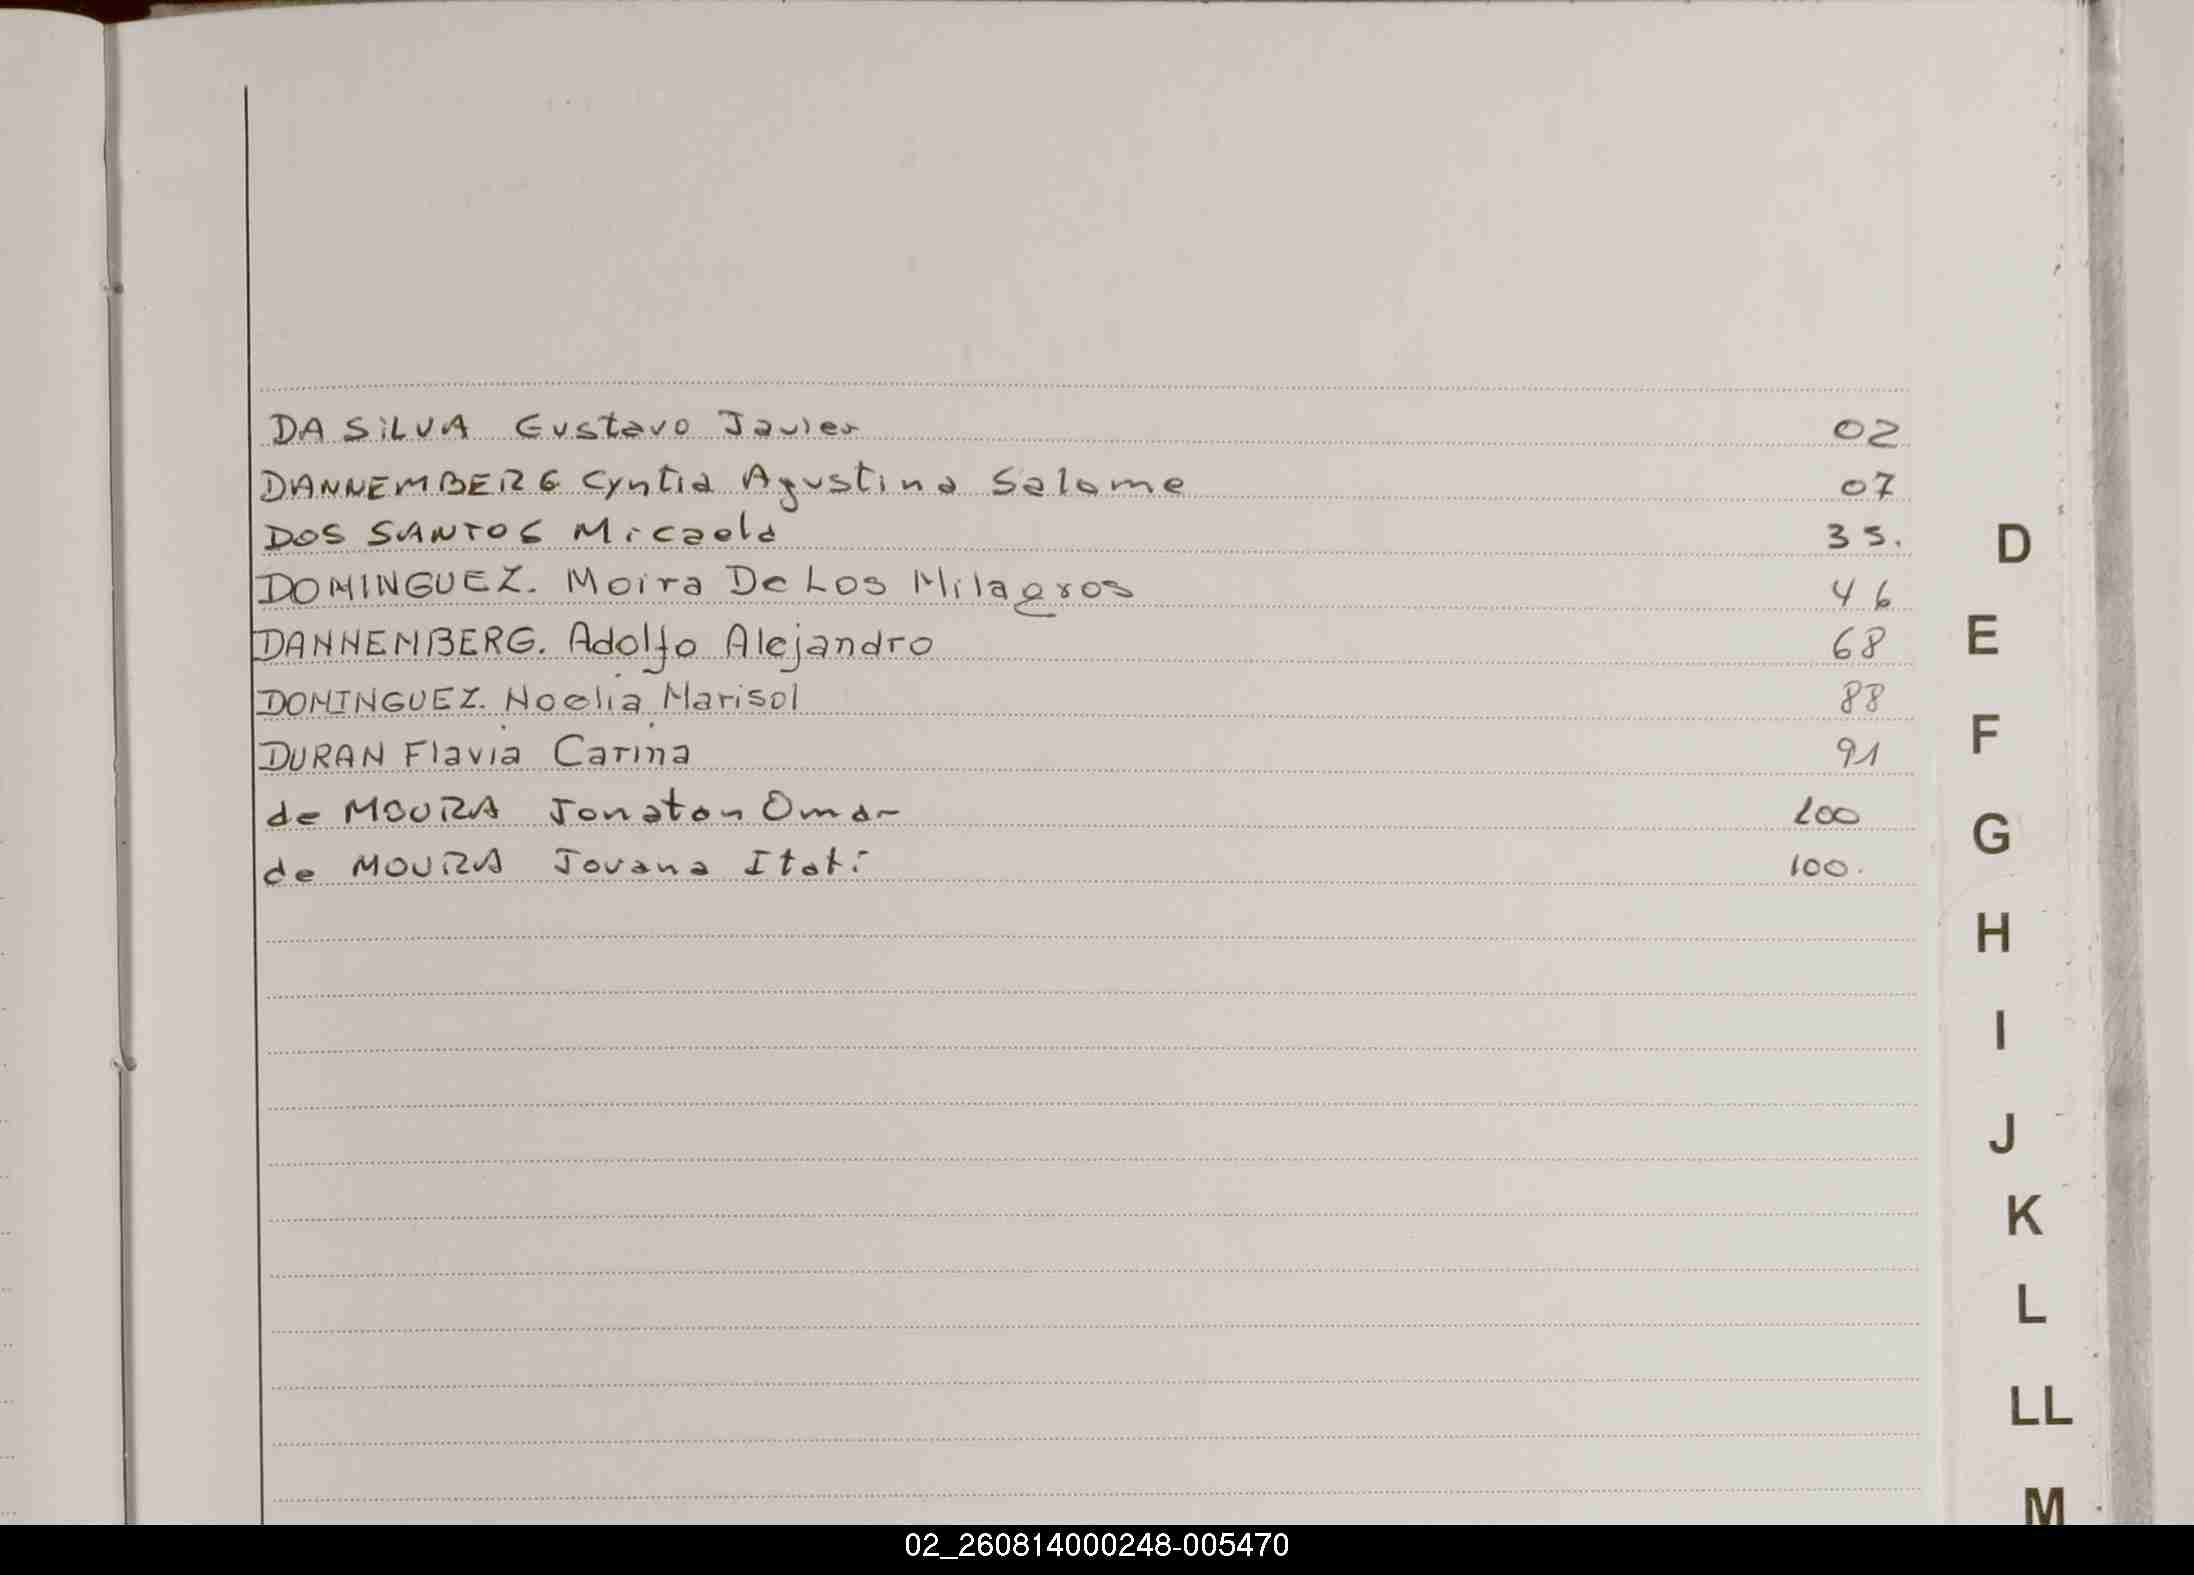 DA SiLVA Gustavo Javier 02
DANNEMBERG Cyntia Agustina Salome 07
DOS SANTOS Micaela 35.
D
DOMINGUEZ. Moira De Los Milagros 46
E
DANNEMBERG. Adolfo Alejandro 68
DOMINGUEZ. Noelia Marisol 88
F
DURAN Flavia Carina 91
de MOURA Jonatan Omar 100
G
de MOURA Jovana Itati 100.
H
I
J
K
L
LL
M
02_260814000248-005470